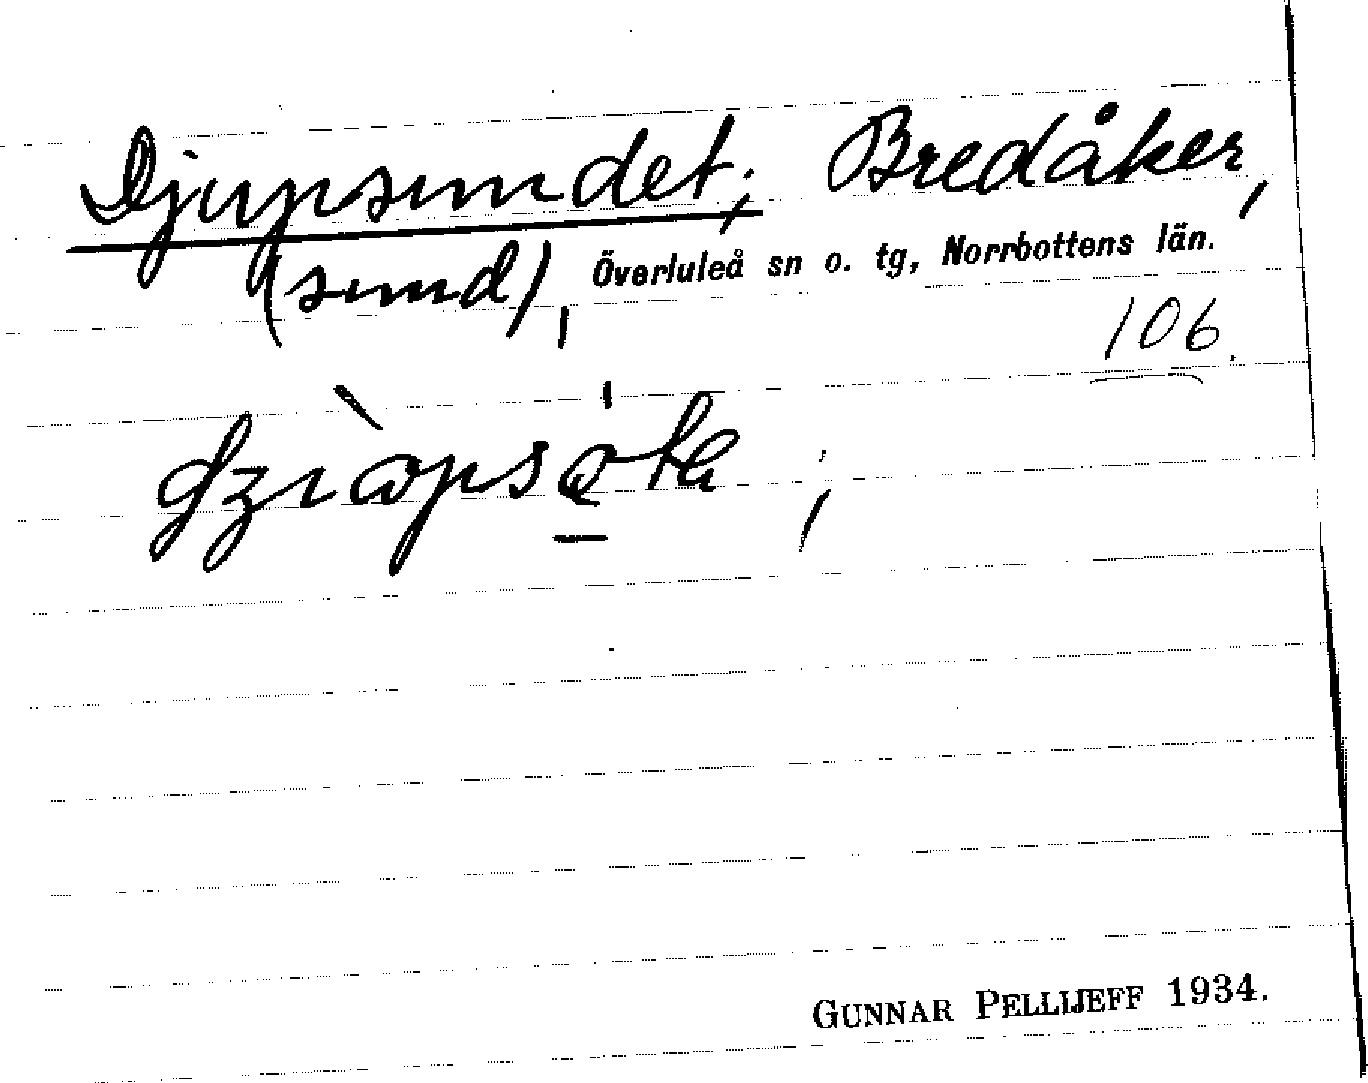 Djupsundet; Bredåker,
(sund), Överluleå sn o. tg, Norrbottens län.
106.
GUNNAR PELLIJEFF 1934.